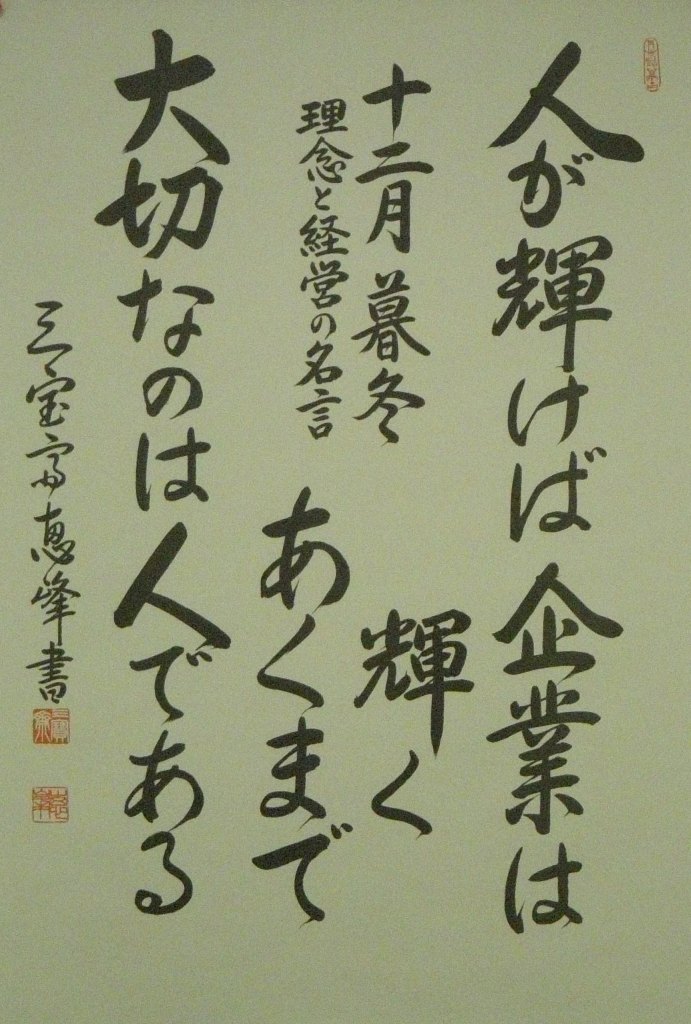 人が輝けば企業は
輝く
あくまで
大切なのは人である
十二月 暮冬
理念と経営の名言
三宝斎恵峰書